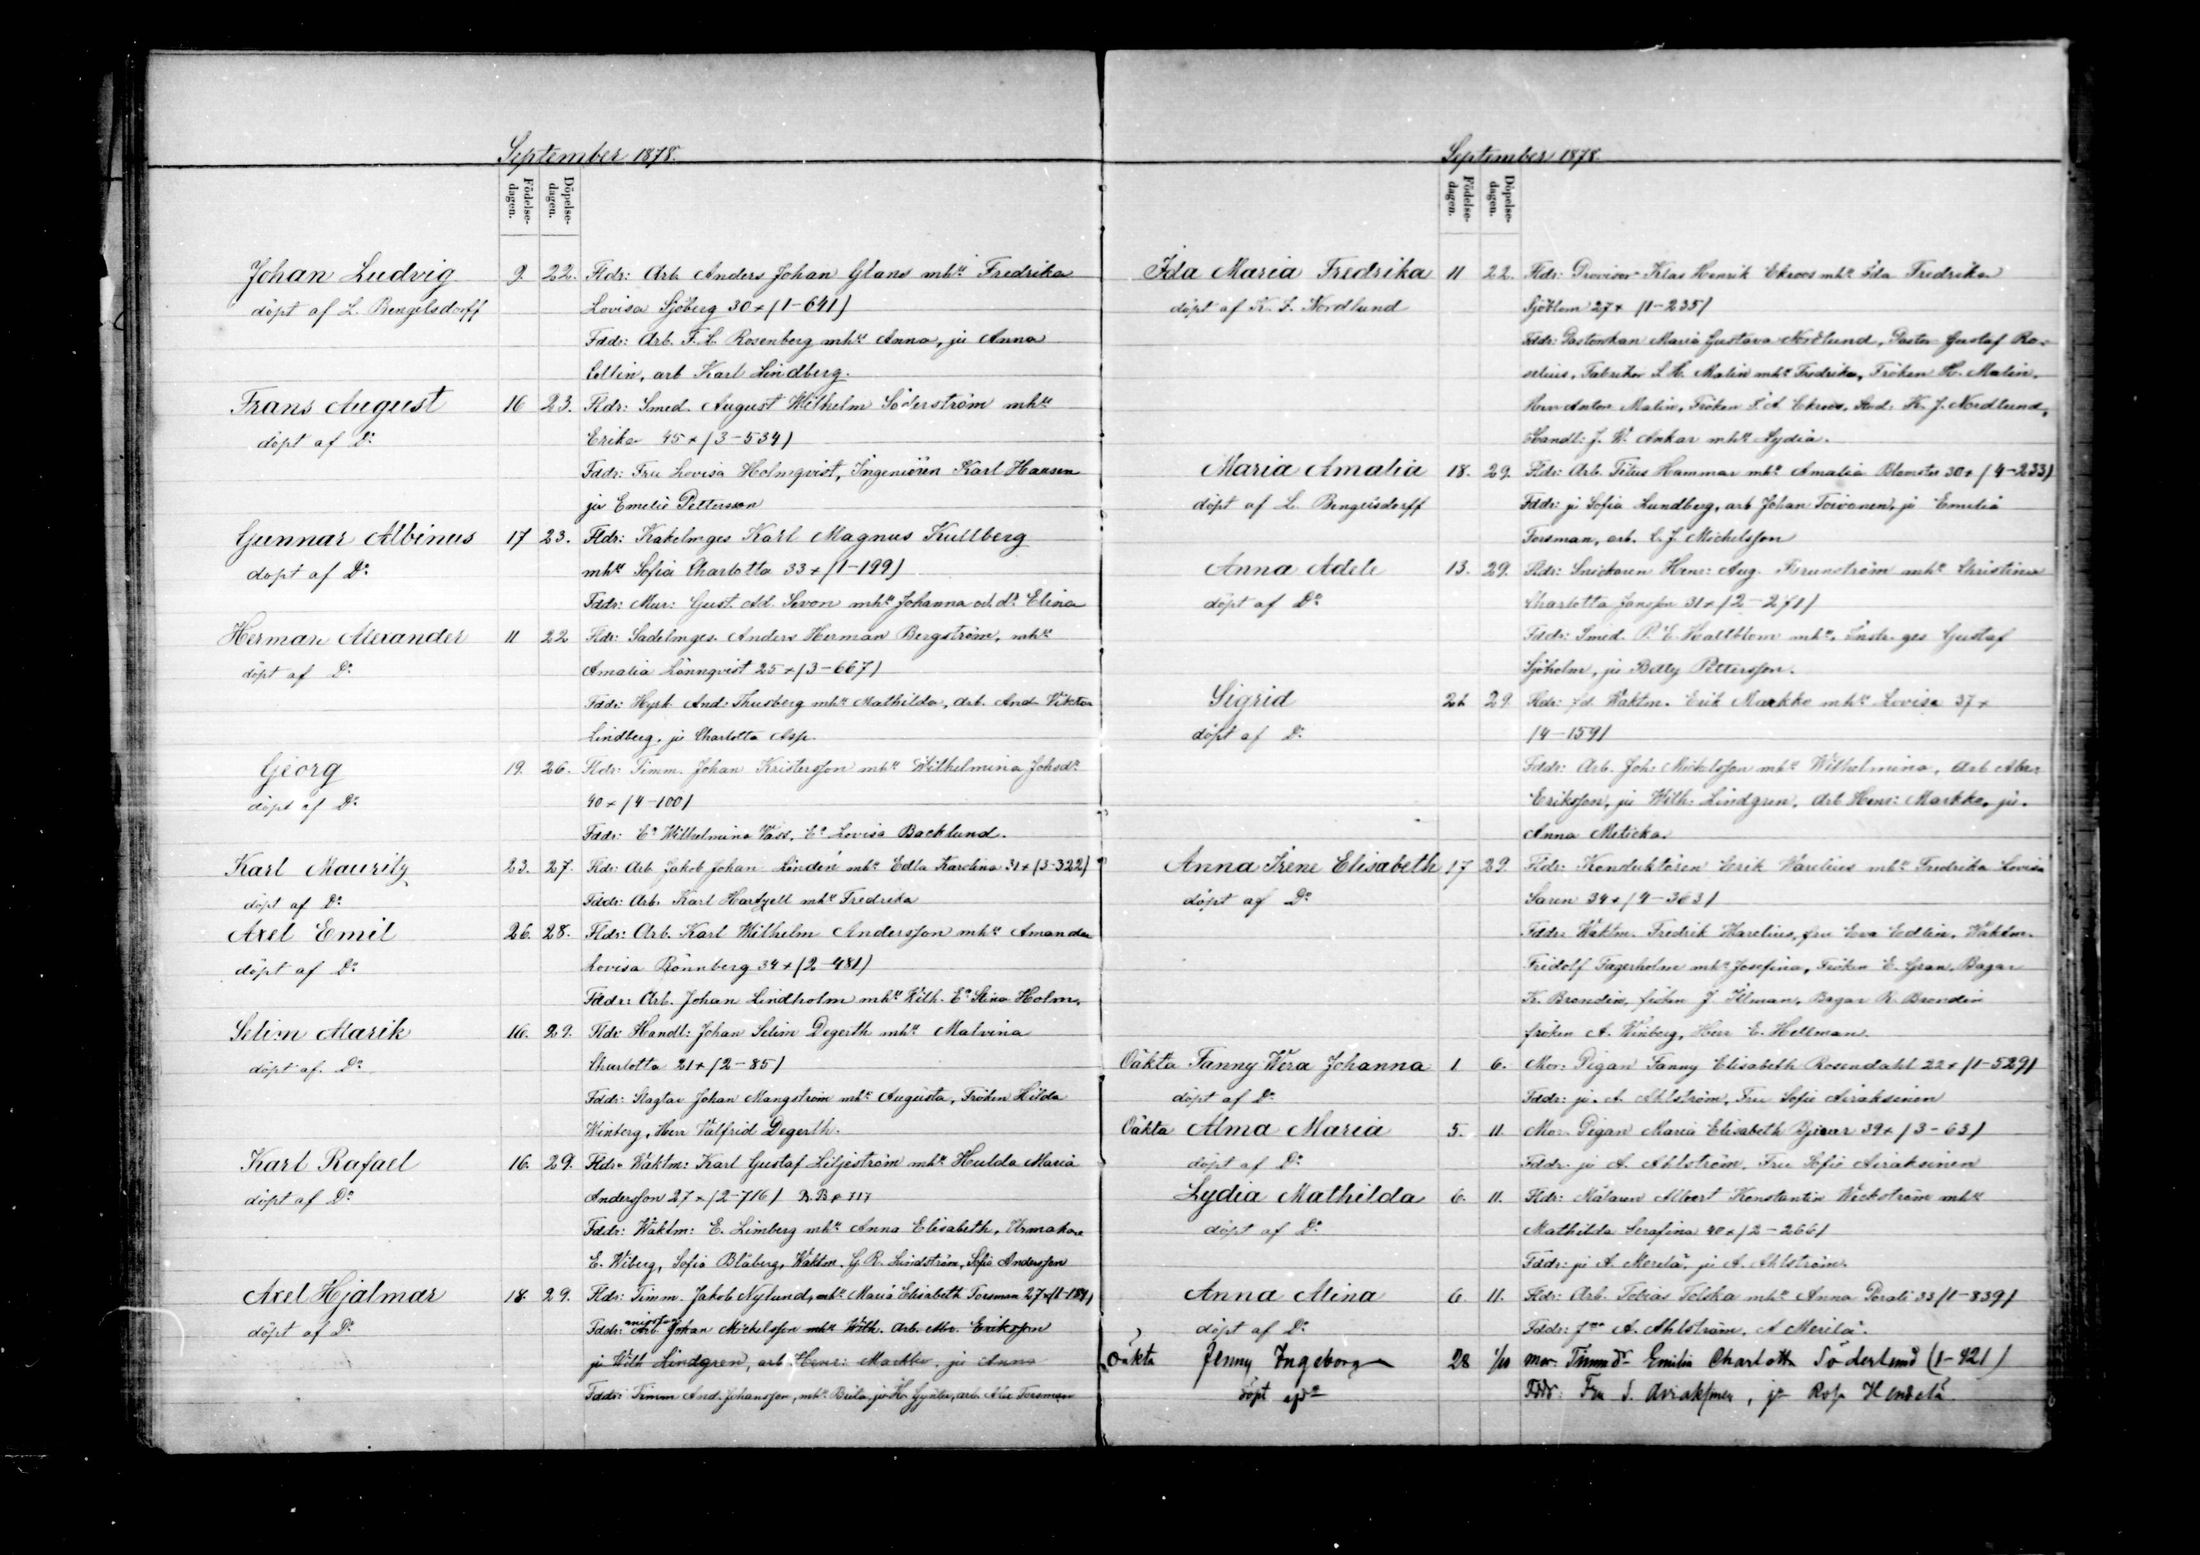 September 1878.
Födelse-dagen.
Döpelse-dagen.
Johan Ludvig 9. 22. Fldr: Arb. Anders Johan Glans mhu Fredrika
döpt af L. Bengelsdorff Lovisa Sjöberg 30+ (1-641)
Fddr: Arb. F. L. Rosenberg mhu Anna, ju Anna
Collin, arb Karl Lindberg.
Frans August 16 23. Fldr: Smed. August Wilhelm Söderström mhu
döpt af Do Erika 45+ (3-534)
Fddr: Fru Lovisa Holmqvist, Ingeniören Karl Hansen
ju Emelie Pettersson
Gunnar Albinus 17 23. Fldr: Kakelmges Karl Magnus Kullberg
döpt af Do mhu Sofia Charlotta 33+ (1-199)
Fddr: Mur: Gust. Ad. Sevon mhu Johanna och dr Elina
Herman Alexander 11 22 Fldr: Sadelmges. Anders Herman Bergström, mhu
döpt af Do Amalia Lönnqvist 25+ (3-667)
Fddr: Hyrk. And. Thusberg mhu Mathilda, Arb. And Viktor
Lindberg, ju Charlotta Asp.
Georg 19. 26. Fldr: Timm. Johan Kristersson mhu Wilhelmina Johsdr
döpt af Do 40+ (4-100)
Fddr: Eo Wilhelmina Vass, Eo Lovisa Backlund.
Karl Mauritz 23. 27. Fldr: Arb Jakob Johan Lindén mhu Edla Karolina 31+ (3-322)
döpt af Do Fddr: Arb. Karl Hartzell mhu Fredrika
Axel Emil 26. 28. Fldr: Arb. Karl Wilhelm Andersson mhu Amanda
döpt af Do Lovisa Rönnberg 34+ (2-481)
Fddr: Arb. Johan Lindholm mhu Wilh. Eo Stina Holm.
Selim Marik 16. 29. Fldr: Handl: Johan Selim Degerth mhu Malvina
döpt af Do Charlotta 21+ (2-85)
Fddr: Slagtar Johan Mangström mhu Augusta, Fröken Hilda
Winberg, Herr Valfrid Degerth.
Karl Rafael 16. 29. Fldr. Waktm: Karl Gustaf Liljeström mhu Hulda Maria
döpt af Do Andersson 27+ (2-716) N.B p 717
Fddr: Waktm: E. Limberg mhu Anna Elisabeth, Urmakare
E. Wiberg, Sofia Blåberg, Waktm. G. R. Lindström, Sofia Andersson
Axel Hjalmar 18. 29. Fldr: Timm. Jakob Nylund, mhu Maria Elisabeth Forsman 27+ (1-189)
döpt af Do Fddr: Arb. Johan Mickelsson mhu Wilh. Arb. Abr. Eriksson
ju Wilh Lindgren, arb Henr: Markko, ju Anna
Fddr: Timm And. Johansson, mhu Brita, ju H. Gynter, arb. Abr Forsman
September 1878.
Födelse-dagen.
Döpelse-dagen.
Ida Maria Fredrika 11 22. Fldr: Provisor Klas Henrik Ekroos mhu Ida Fredrika
döpt af K. J. Nordlund Sjöblom 27+ (1-235)
Fddr: Pastorskan Maria Gustava Nordlund, Pastor Gustaf Ro-
selius, Fabrikör L H. Malin mhu Fredrika, Fröken H. Malin,
Herr Anton Malin, Fröken I. A Ekroos, Stud. K. J. Nordlund,
Handl: J. W. Ankar mhu Lydia.
Maria Amalia 18. 29. Fldr: Arb. Titus Hammar mhu Amalia Blomster 30+ (4-233)
döpt af L. Bengelsdorff Fddr: ju Sofia Lundberg, arb Johan Toivonen, ju Emelia
Forsman, arb. L. J. Michelsson
Anna Adele 13. 29. Fldr: Snickaren Henr: Aug. Brunström mhu Christina
döpt af Do Charlotta Jansson 31+ (2-271)
Fddr: Smed. P. E. Hallblom mhu, Instr. ges Gustaf
Sjöholm, ju Betty Pettersson.
Sigrid 21 29. Fldr: fd. Waktm. Erik Markko mhu Lovisa 37+
döpt af Do (4-159)
Fddr: Arb. Joh: Mickelsson mhu Wilhelmina, Arb Abr:
Eriksson, ju Wilh: Lindgren, Arb Henr: Markko, ju.
Anna Meticka.
Anna Irene Elisabeth 17 29. Fldr: Konduktören Erik Warelius mhu Fredrika Lovisa
döpt af Do Saren 34+ (4-363)
Fddr: Waktm. Fredrik Warelius, fru Eva Edlin, Waktm.
Fridolf Fagerholm mhu Josefina, Fröken E. Gran, Bagar
K. Brondin, fröken J. Illman, Bagar R. Brondin
fröken A. Winberg, Herr E. Hellman.
Oäkta Fanny Wera Johanna 1 6. Mor: Pigan Fanny Elisabeth Rosendahl 22+ (1-529)
döpt af Do Fddr: ju. A Ahlström, Fru Sofie Airaksinen
Oäkta Alma Maria 5. 11. Mor. Pigan Maria Elisabeth 39+ (3-63)
döpt af Do Fddr. ju A. Ahlström, Fru Sofie Airaksinen
Lydia Mathilda 6. 11. Fldr: Målaren Albert Konstantin Wickström mhu
döpt af Do Mathilda Serafina 40+ (2-266)
Fddr: ju A. Merilä, ju A. Ahlström.
Anna Alina 6. 11. Fldr: Arb. Tobias Tolska mhu Anna Porali 33 (1-839)
döpt af Do Fddr: A. Ahlström, A Merilä.
Oäkta Jenny Ingeborg 28 1/10 mor. Timmdr Emilia Charlotta Söderlund (1-421)
döpt af Do Fddr: Fru S. Airaksinen, ju Rosa